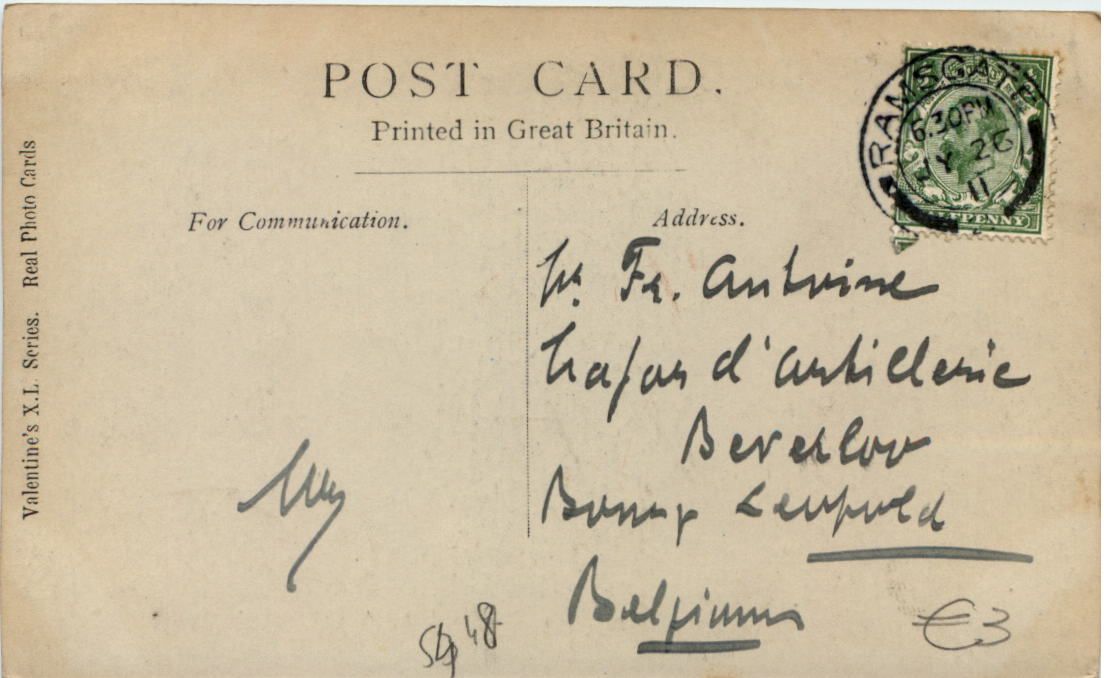 POST CARD.
Printed in Great Britain.
For Communication.
Address.
RAMSGATE
6.30PM
JY 26
11
PENNY
Fr. Antoine
d'artillerie
Beverloo
Bourg Leopold
Belgium
€3
48
Valentine's X.L. Series. Real Photo Cards